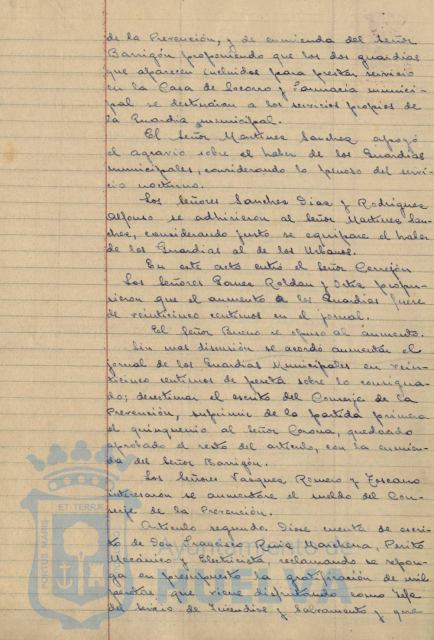 de la Prevención, y de enmienda del Señor
Barrigón proponiendo que los dos guardias
que aparecen incluidos para prestar servicio
en la Casa de Socorro y Farmacia munici-
pal se destinaran a los servicios propios de
la Guardia municipal.
El Señor Martinez Sanchez apoyó
el agravio sobre el haber de los Guardias
municipales, considerando lo penoso del servi-
cio nocturno.
Los Señores Sanchez Diaz y Rodriguez
Alfonso se adhirieron al Señor Martinez San-
chez, considerando justo se equipare el haber
de los Guardias al de los Urbanos.
En este acto entró el Señor Cerrejón
Los Señores Gomez Roldan y propu-
sieron que el aumento a los Guardias fuere
de veinticinco centimos en el jornal.
El Señor Bueno se opuso al aumento.
Sin mas discusión se acordó aumentar el
jornal de los Guardias Municipales en vein-
ticinco centimos de peseta sobre lo consigna-
do; desestimar el escrito del Conserje de la
Prevención, suprimir de la partida primera
el quinquenio al Señor Corona, quedando
aprobado el resto del articulo, con la enmien-
da del Señor Barrigón.
Los Señores Vazquez Romero y Toscano
interesaron se aumentare el sueldo del Con-
serje de la Prevención.
Articulo segundo. Diose cuenta de escri-
to de Don Francisco Ruiz Marchena, Perito
Mecánico y Electricista, reclamando se repon-
ga en presupuesto la gratificación de mil
pesetas que viene disfrutando como Jefe
del servicio de Incendios y Salvamento y que
PORTUS MARIS ET TERRÆ
Ayuntamiento de
HUELVA